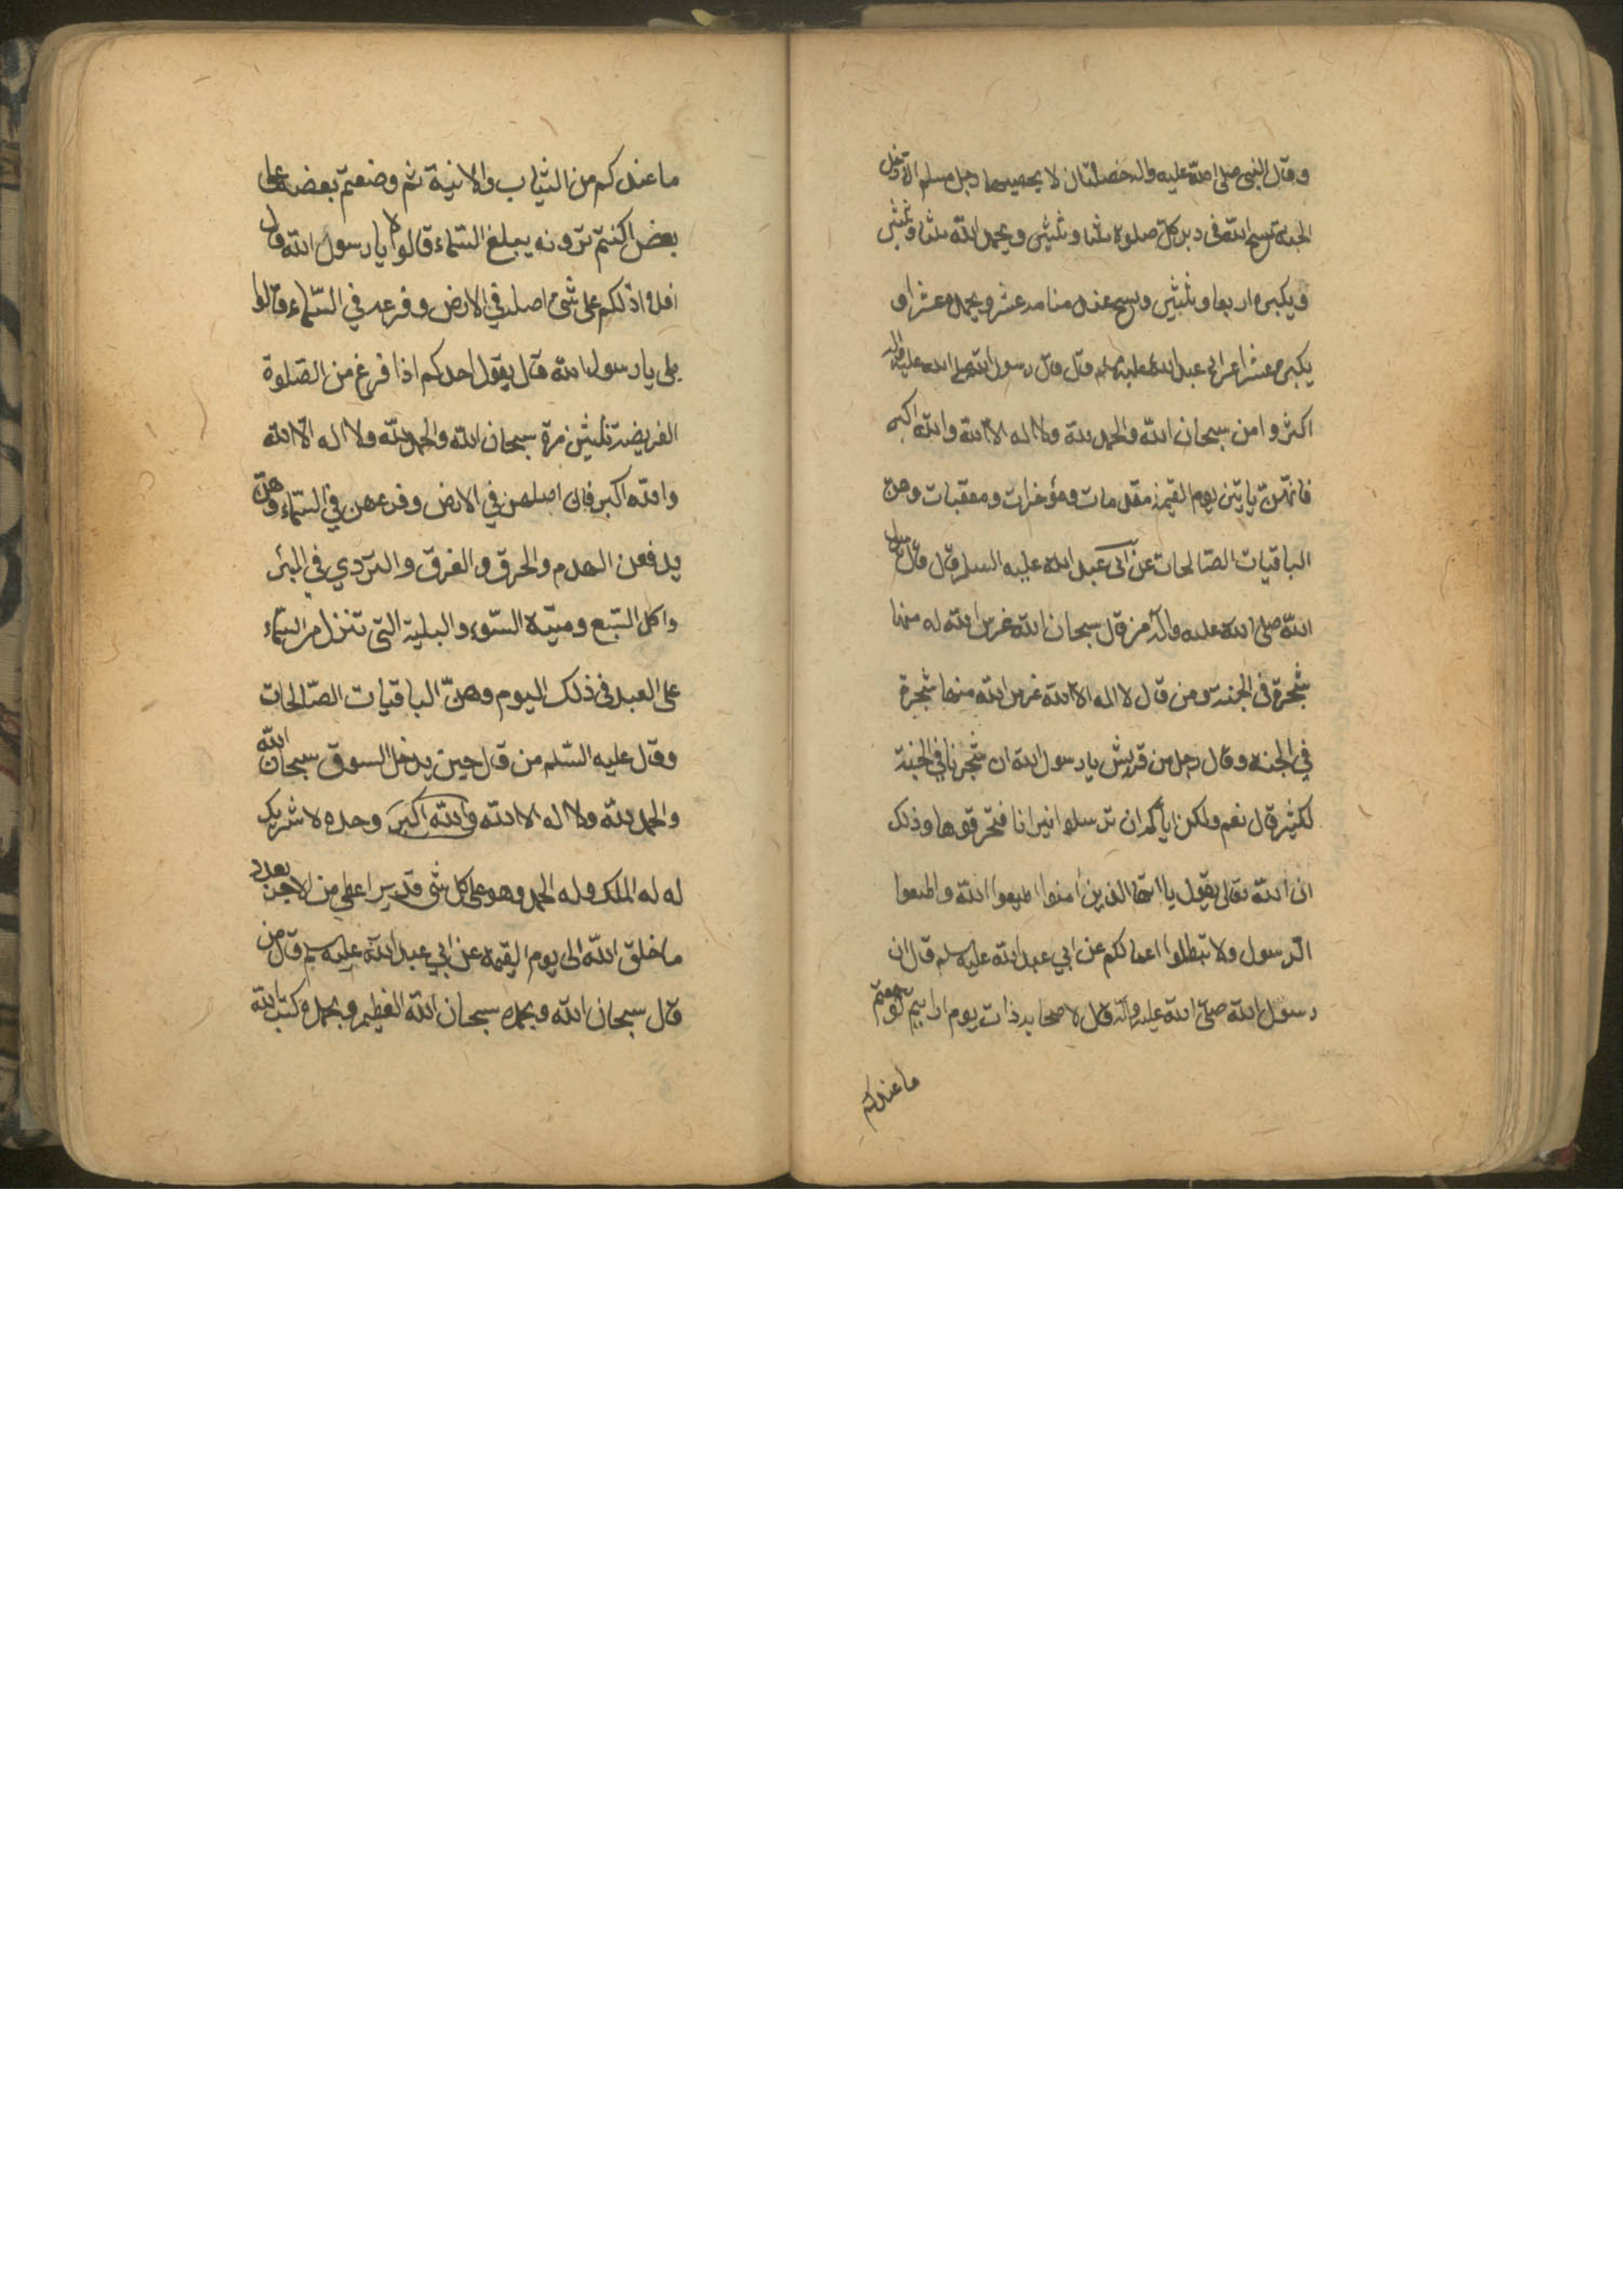 وقال النبي صلى الله عليه واله خصلتان لا يحصيهما رجل مسلم الا دخل
الجنة يسبح الله في دبر كل صلوة ثلثا وثلثين ويحمد الله ثلثا وثلثين
ويكبره اربعا وثلثين ويسبح عند منامه عشر ويحمده عشرا و
يكبره عشرا عن ابي عبد الله عليه سلم قال قال رسول الله صلى الله عليه واله
اكثروا من سبحان الله والحمد لله ولا اله الا الله والله اكبر
فانهن ياتين يوم القيمة مقدمات ومؤخرات ومعقبات وهن
الباقيات الصالحات عن ابي عبد الله عليه السلم قال قال رسول
الله صلى الله عليه وآله من قال سبحان الله غرس الله له منها
شجرة في الجنة ومن قال لا اله الا الله غرس الله منها شجرة
في الجنة وقال رجل من قريش يا رسول الله ان شجرنا في الجنة
لكثير قال نعم ولكن اياكم ان ترسلوا نيرانا فتحرقوها وذلك
ان الله تعالى يقول يا ايها الذين آمنوا اطيعوا الله واطيعوا
الرسول ولا تبطلوا اعمالكم عن ابي عبد الله عليه سلم قال ان
رسول الله صلى الله عليه وآله قال لاصحابه ذات يوم ارايتم لو جمعتم
ما عندكم
ما عندكم من الثياب والانية ثم وضعتم بعضه على
بعض اكنتم ترونه يبلغ السماء قالوا لا يا رسول الله قال
افلا ادلكم على شئ اصله في الارض وفرعه في السماء قالوا
بلى يا رسول الله قال يقول احدكم اذا فرغ من الصلوة
الفريضة ثلثين مرة سبحان الله والحمد لله ولا اله الا الله
والله اكبر فان اصلهن في الارض وفرعهن في السماء وهن
يدفعن الهدم والحرق والغرق والتردي في البئر
واكل السبع وميتة السوء والبلية التي تنزل من السماء
على العبد في ذلك اليوم وهن الباقيات الصالحات
وقال عليه السلم من قال حين يدخل السوق سبحان الله
والحمد لله ولا اله الا الله والله اكبر وحده لا شريك
له له الملك وله الحمد وهو على كل شئ قدير اعطي من الاجر بعدد
ما خلق الله الى يوم القيمة عن ابي عبد الله عليه سلم قال من
قال سبحان الله وبحمده سبحان الله العظيم وبحمده كتب الله